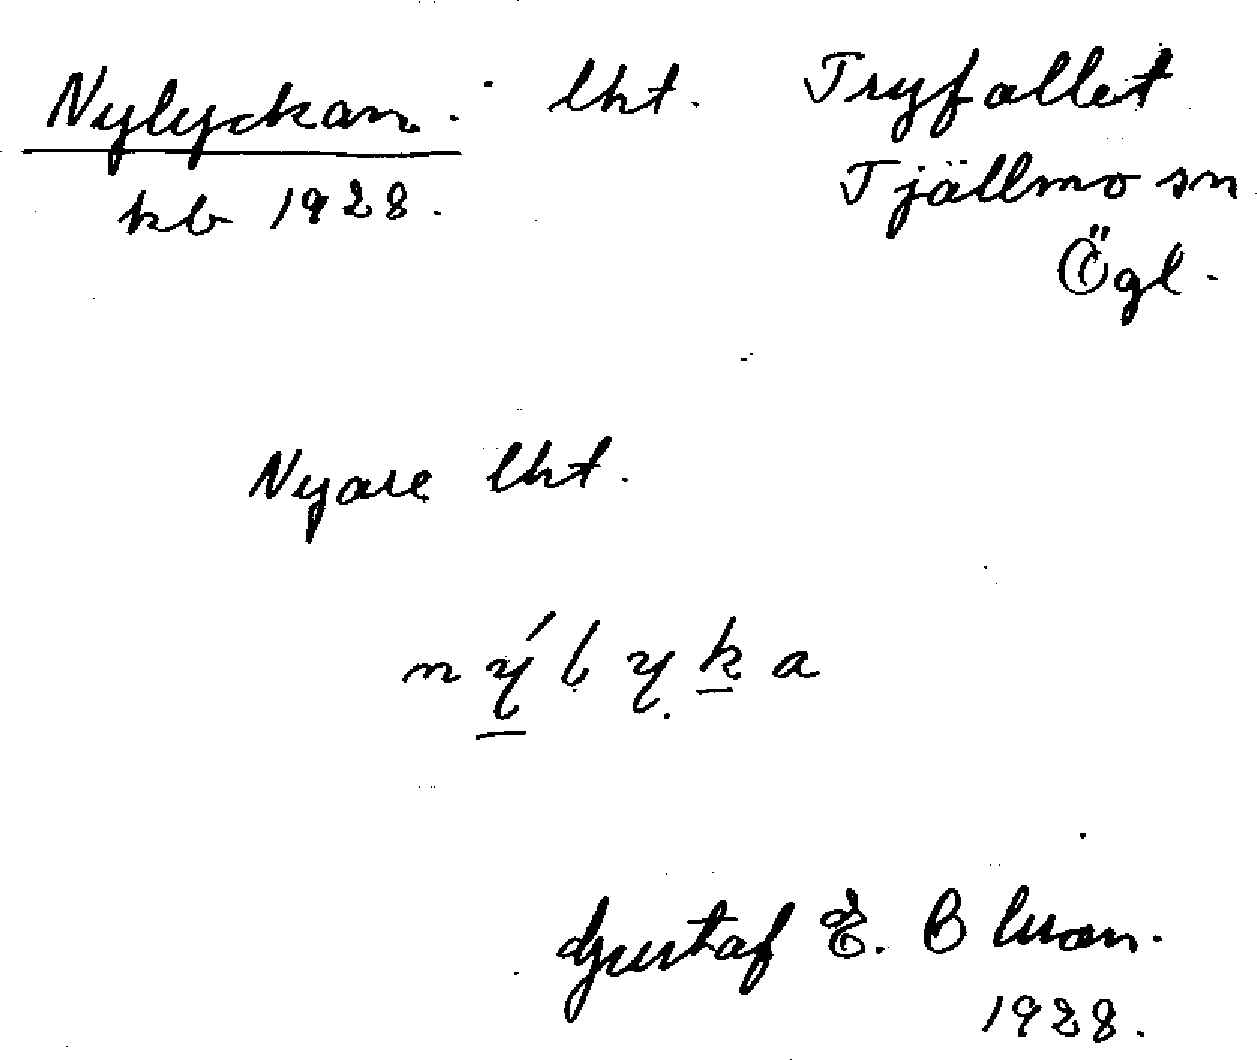 Nylyckan. lht. Tryfallet
kb 1928. Tjällmo sn
Ögl.
Nyare lht.
nýlyka
Gustaf E.
1928.